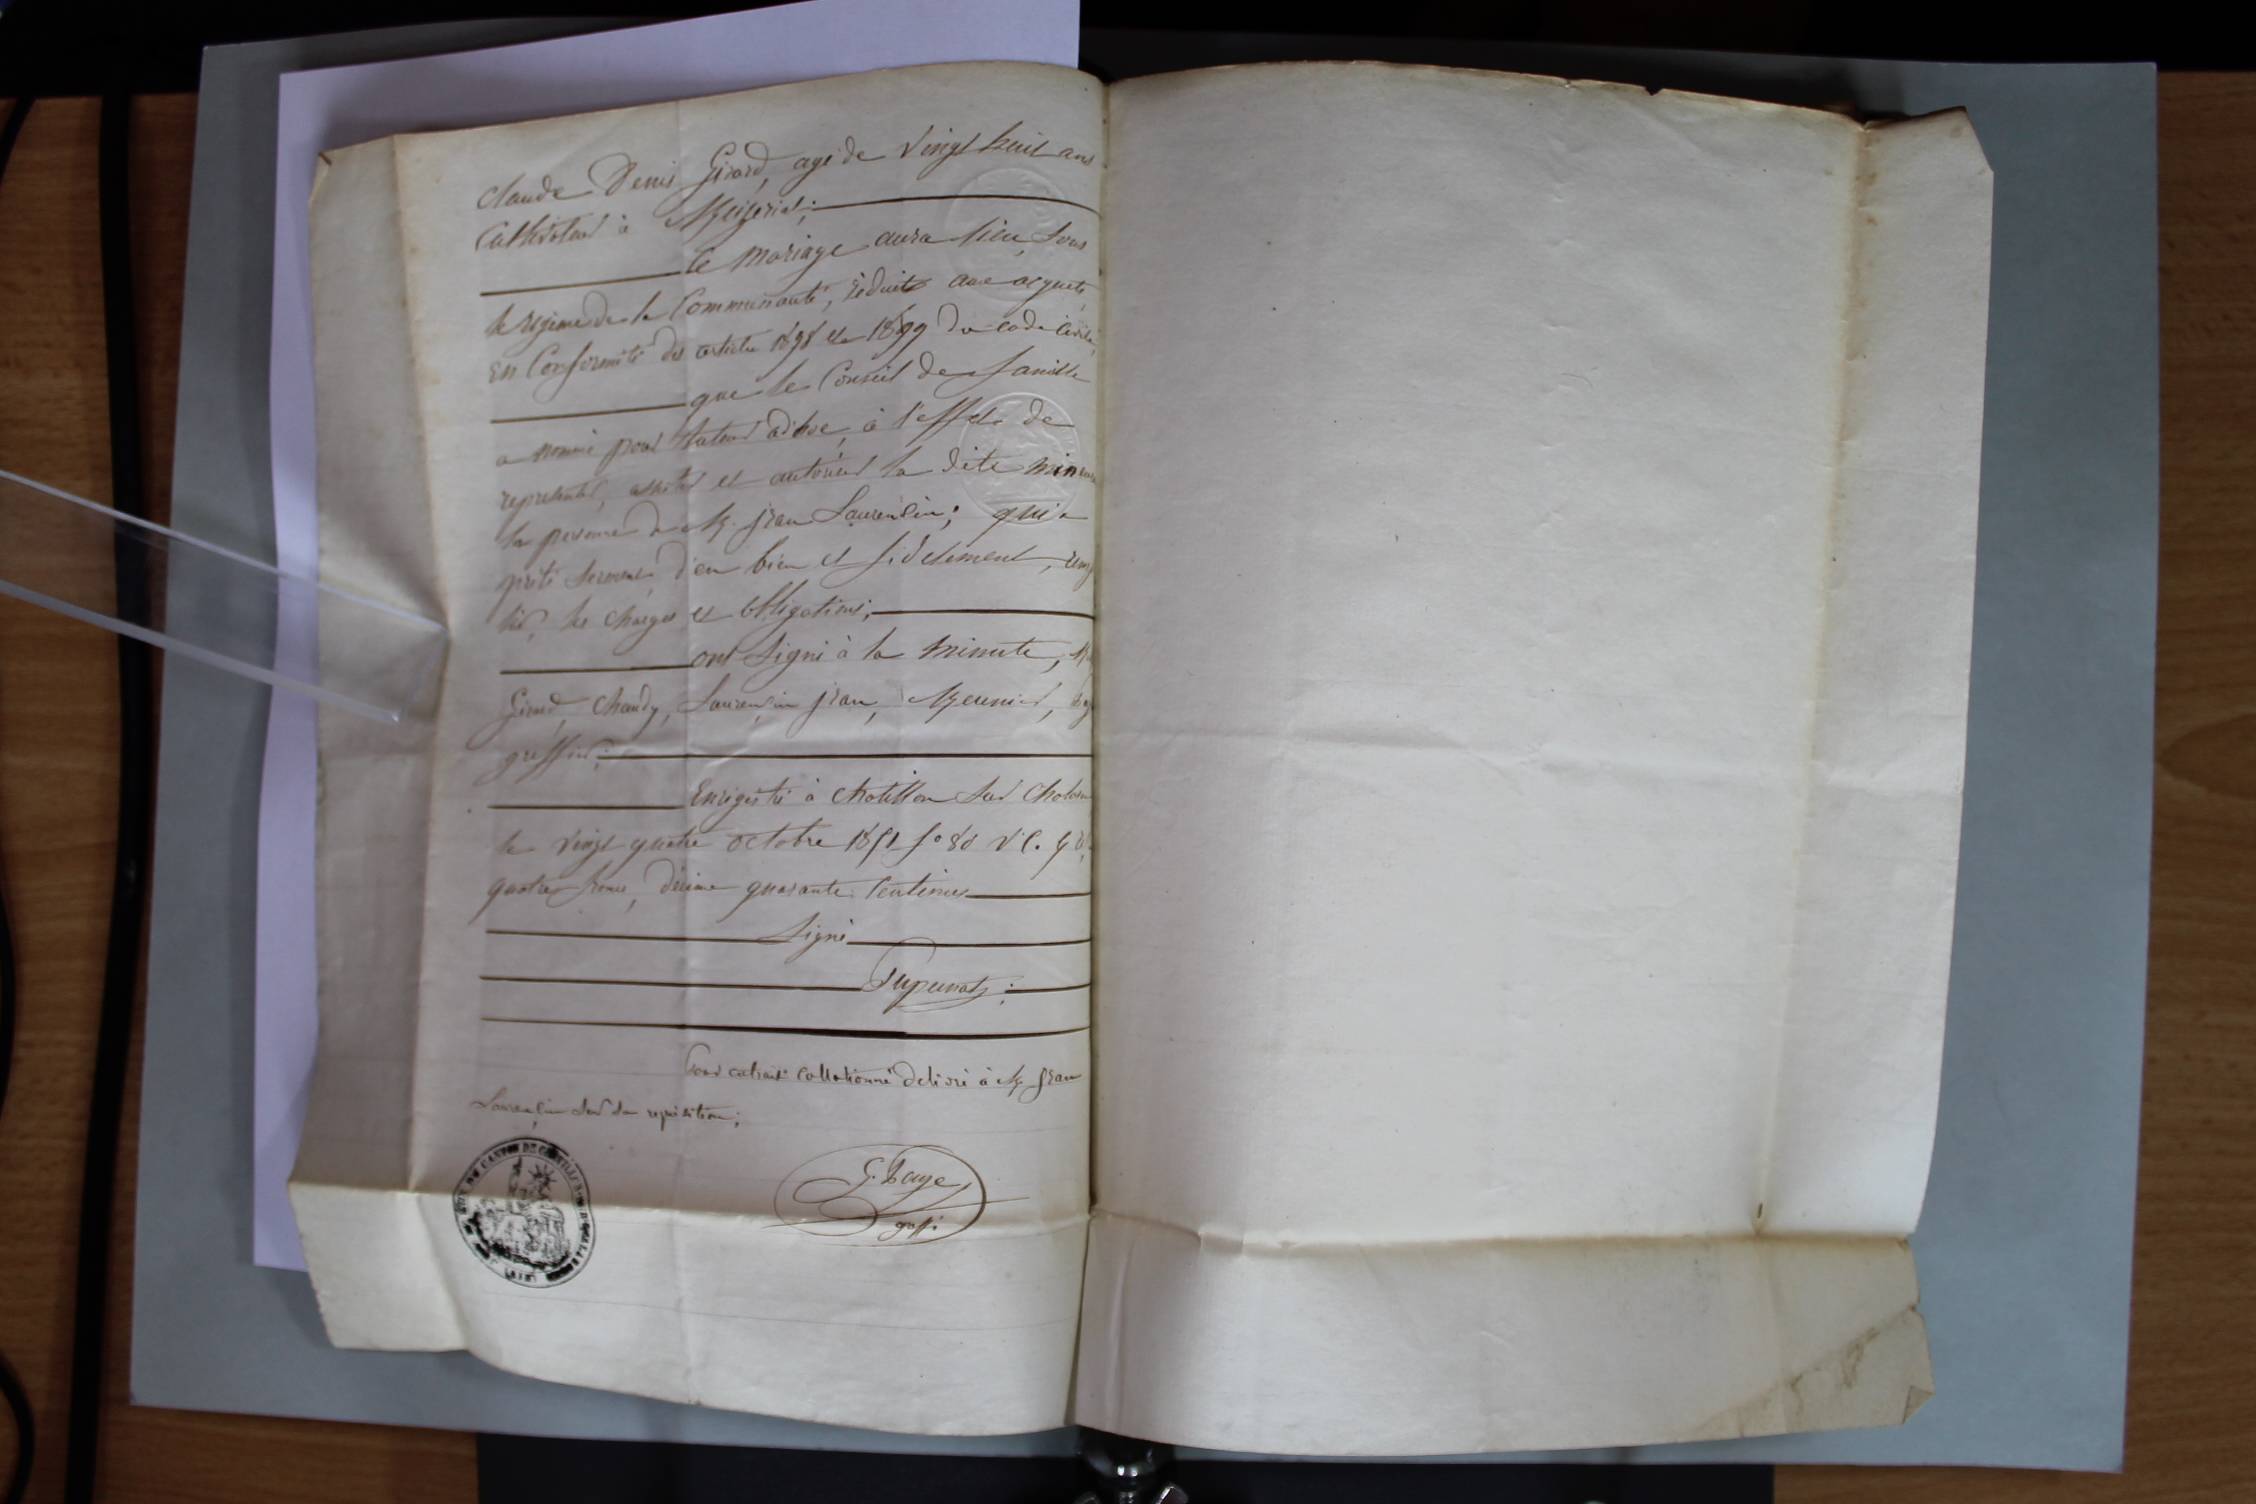 Claude Denis Girard, agé de vingt huit ans
Cultivateur à Mézeriat;
le mariage aura lieu, sous
le régime de la Communauté, réduite aux acquets,
en Conformité des articles 1498 et 1499 du code Civil;
que le Conseil de famille
a nommé pour tuteur adhoc, à l'effet de
représenter, assister et autoriser la dite mineure
la personne de M. Jean Laurencin; qui a
prêté serment, d'en bien et fidelement, remp
lir, les charges et obligations;
ont signé à la minute,
Girard, Chaudy, Laurencin Jean, Meunier,
greffier;
Enregistré à Chatillon sur Chalaronne
le vingt quatre octobre 1851 fo 80 v° C.
quatre francs, décime quarante Centimes
Signé
Pour extrait Collationné delivré à M. Jean
Laurencin sur sa requisition;
G. Baye
greff.
CANTON DE